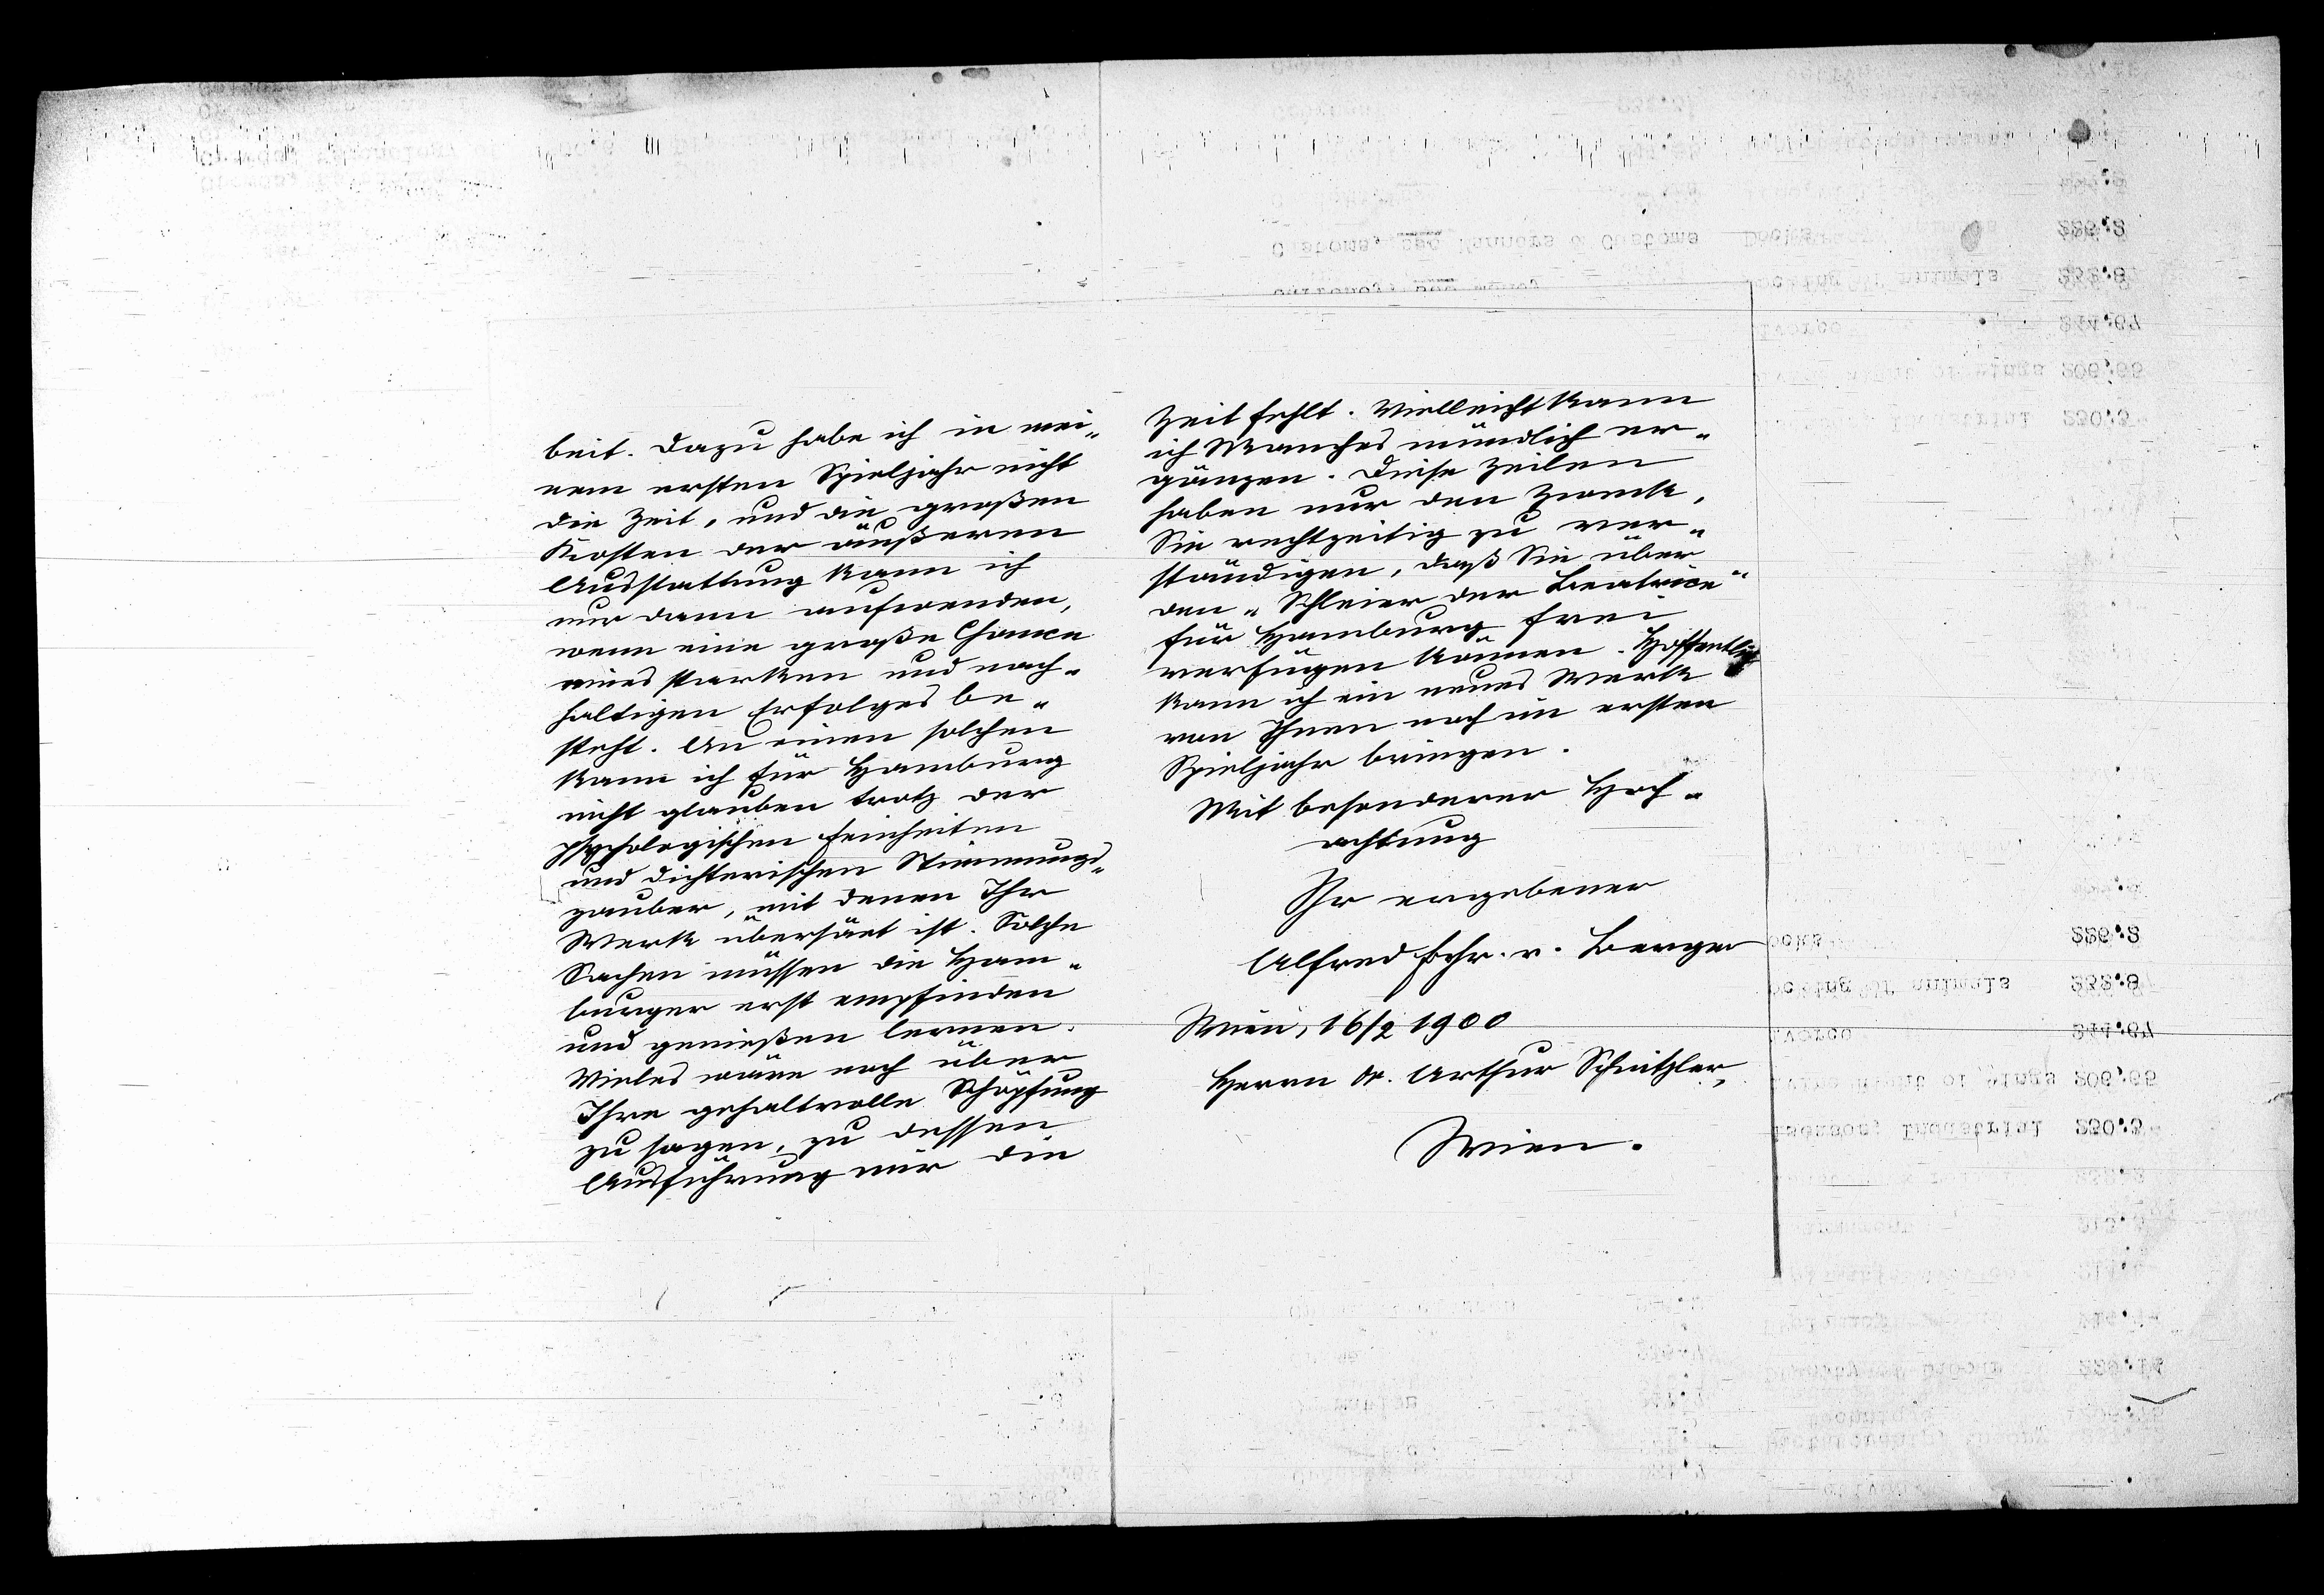 beit. Dazu habe ich in mei-
nem ersten Spieljahr nicht
die Zeit, und die großen
Kosten der äußeren
Ausstattung kann ich
nur dann aufwenden,
wenn eine große Chance
eines starken und nach-
haltigen Erfolges be-
steht. An einen solchen
kann ich für Hamburg
nicht glauben trotz der
psychologischen Feinheiten
und dichterischen Stimmungs-
zauber, mit denen Ihr
Werk übersäet ist. Solche
Sachen müssen die Ham-
burger erst empfinden
und genießen lernen.
Vieles wäre noch über
Ihre gehaltvolle Schöpfung
zu sagen, zu dessen
Ausführung mir die
Zeit fehlt. Vielleicht kann
ich Manches mündlich er-
gänzen. Diese Zeilen
haben nur den Zweck,
Sie rechtzeitig zu ver-
ständigen, daß Sie über
den „Schleier der Beatrice“
für Hamburg frei
verfügen können. Hoffentlich
kann ich ein neues Werk
von Ihnen noch im ersten
Spieljahr bringen.
Mit besonderer Hoch-
achtung
Ihr ergebener
Alfred Frhr. v. Berger
Wien, 16/2 1900
Herrn Dr. Arthur Schnitzler,
Wien.